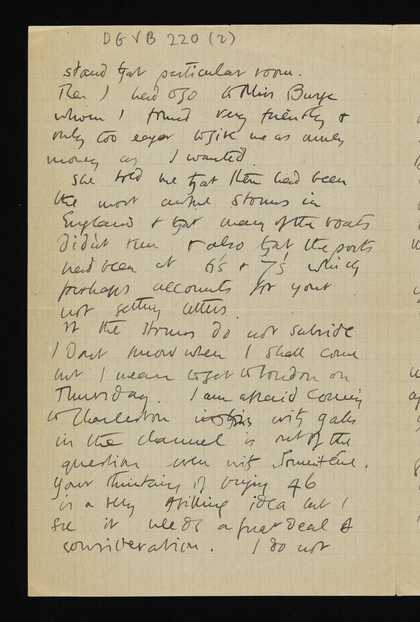 DGVB 220 (2)
stand that particular room.
Then I had to go to Miss Burge
whom I found very friendly &
only too eager to give me as much
money as I wanted.
She told me that there had been
the most awful storms in
England & that many of the boats
didn't run & also that the posts
had been at 6's & 7's which
perhaps accounts for your
not getting letters.
If the storms do not subside
I dont know when I shall come
but I mean to get to London on
Thursday. I am afraid coming
to Charleston with gales
in the channel is out of the
question even with
Your thinking of buying 46
is a very thrilling idea but I
see it needs a great deal of
consideration. I do not